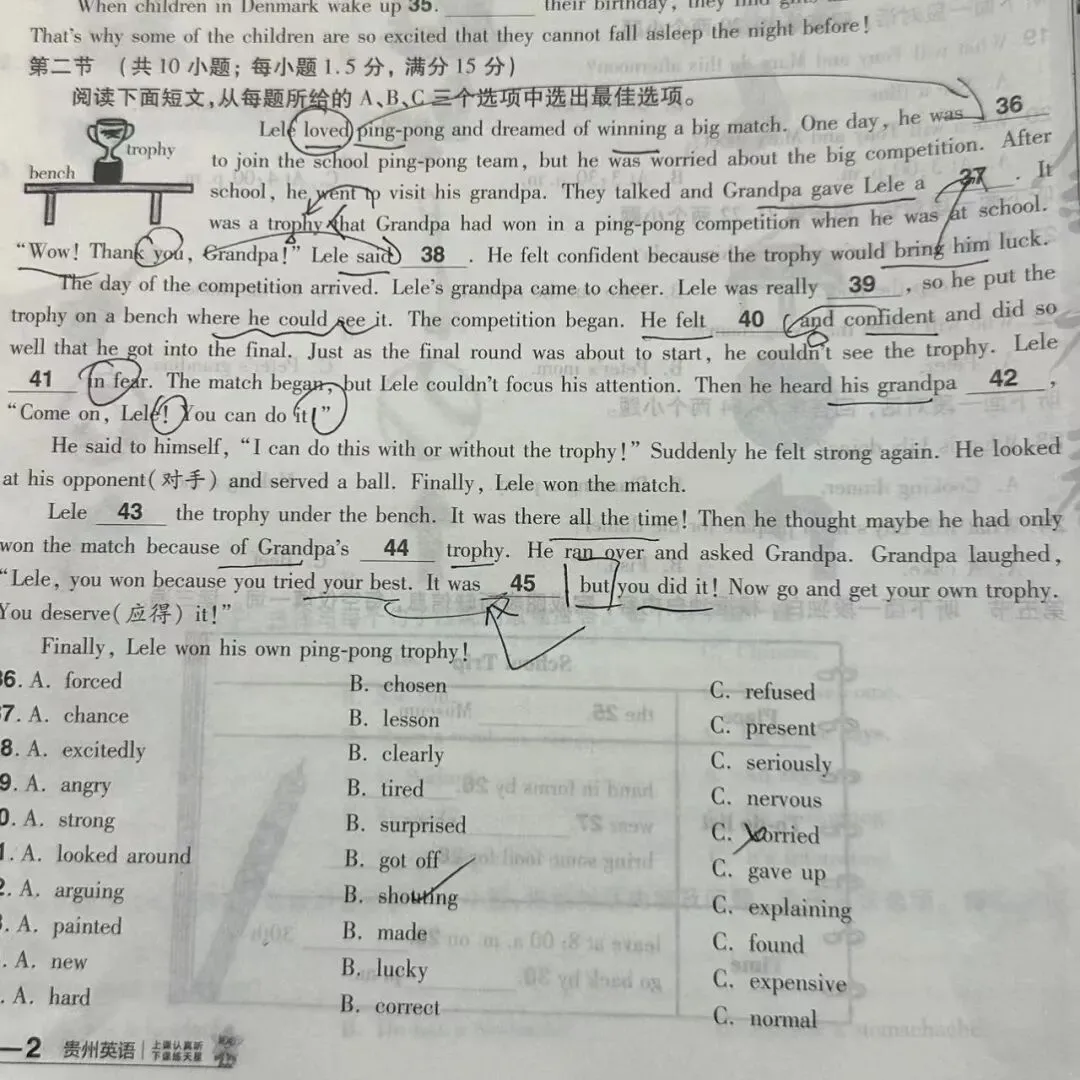 When children in Denmark wake up 35. ________ their birthday, they find
That's why some of the children are so excited that they cannot fall asleep the night before!
第二节 (共 10 小题; 每小题 1.5 分, 满分 15 分)
阅读下面短文,从每题所给的 A、B、C 三个选项中选出最佳选项。
trophy
bench
Lele loved ping-pong and dreamed of winning a big match. One day, he was 36
to join the school ping-pong team, but he was worried about the big competition. After
school, he went to visit his grandpa. They talked and Grandpa gave Lele a 37 . It
was a trophy that Grandpa had won in a ping-pong competition when he was at school.
“Wow! Thank you, Grandpa!” Lele said 38 . He felt confident because the trophy would bring him luck.
The day of the competition arrived. Lele's grandpa came to cheer. Lele was really 39 , so he put the
trophy on a bench where he could see it. The competition began. He felt 40 and confident and did so
well that he got into the final. Just as the final round was about to start, he couldn't see the trophy. Lele
41 in fear. The match began, but Lele couldn't focus his attention. Then he heard his grandpa 42 ,
“Come on, Lele! You can do it!”
He said to himself, “I can do this with or without the trophy!” Suddenly he felt strong again. He looked
at his opponent(对手) and served a ball. Finally, Lele won the match.
Lele 43 the trophy under the bench. It was there all the time! Then he thought maybe he had only
won the match because of Grandpa's 44 trophy. He ran over and asked Grandpa. Grandpa laughed,
“Lele, you won because you tried your best. It was 45 but you did it! Now go and get your own trophy.
You deserve(应得) it!”
Finally, Lele won his own ping-pong trophy!
36. A. forced B. chosen C. refused
37. A. chance B. lesson C. present
8. A. excitedly B. clearly C. seriously
9. A. angry B. tired C. nervous
0. A. strong B. surprised C. worried
1. A. looked around B. got off C. gave up
2. A. arguing B. shouting C. explaining
3. A. painted B. made C. found
. A. new B. lucky C. expensive
. A. hard B. correct C. normal
—2 贵州英语 上课认真听
下课练天星